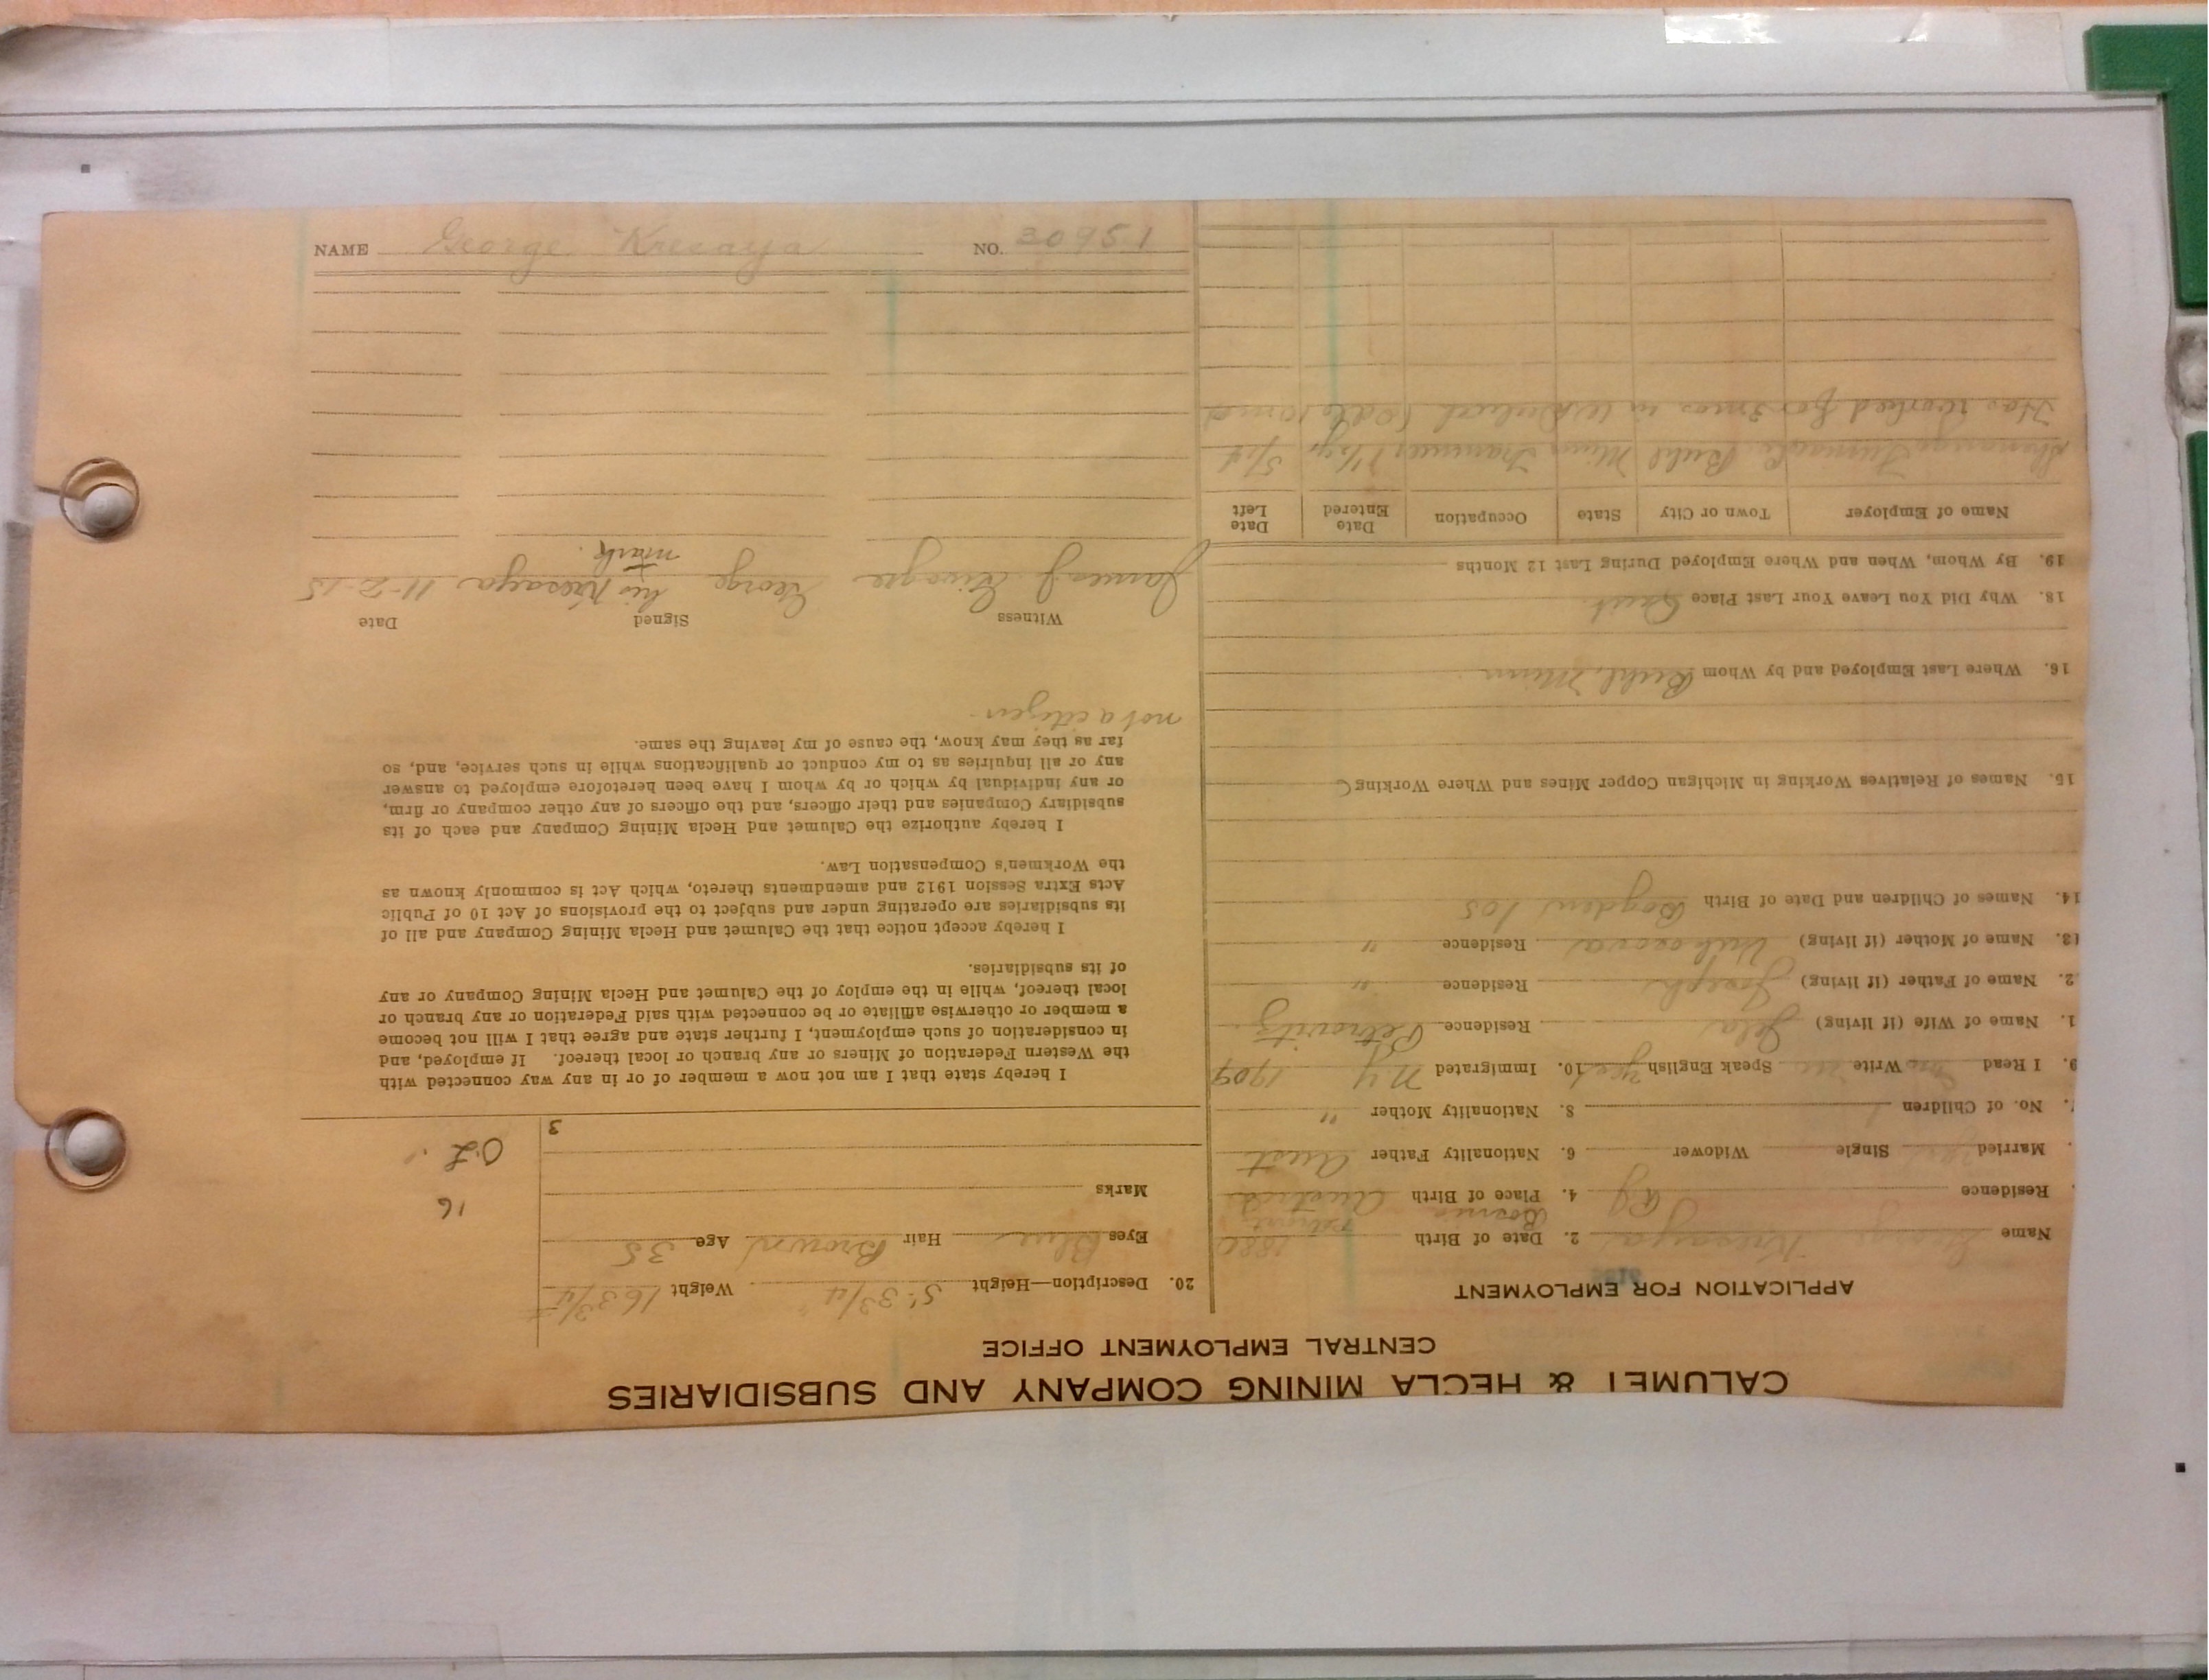 CALUMET & HECLA MINING COMPANY AND SUBSIDIARIES
CENTRAL EMPLOYMENT OFFICE
APPLICATION FOR EMPLOYMENT
Name George 2. Date of Birth 1880
Residence 4. Place of Birth Bosnia Austria
Married Single Widower 6. Nationality Father Aust
No. of Children 1 8. Nationality Mother "
9. I Read no Write no Speak English yes 10. Immigrated N Y 1909
1. Name of Wife (if living) Jela Residence Petrovitz
2. Name of Father (if living) Joseph Residence "
13. Name of Mother (if living) Residence "
14. Names of Children and Date of Birth Bogden 10s
15. Names of Relatives Working in Michigan Copper Mines and Where Working
16. Where Last Employed and by Whom Buhl, Minn
18. Why Did You Leave Your Last Place Quit
19. By Whom, When and Where Employed During Last 12 Months
Name of Employer Town or City State Occupation Date Entered Date Left
Shenango Furnace Co Buhl Minn Trammer 1 1/2 yr 5/14
Has worked for 3 mos in
20. Description—Height 5' 3 3/4" Weight 163 3/4
Eyes Blue Hair Brown Age 35
Marks
3
16
O.L.
I hereby state that I am not now a member of or in any way connected with
the Western Federation of Miners or any branch or local thereof. If employed, and
in consideration of such employment, I further state and agree that I will not become
a member or otherwise affiliate or be connected with said Federation or any branch or
local thereof, while in the employ of the Calumet and Hecla Mining Company or any
of its subsidiaries.
I hereby accept notice that the Calumet and Hecla Mining Company and all of
its subsidiaries are operating under and subject to the provisions of Act 10 of Public
Acts Extra Session 1912 and amendments thereto, which Act is commonly known as
the Workmen's Compensation Law.
I hereby authorize the Calumet and Hecla Mining Company and each of its
subsidiary Companies and their officers, and the officers of any other company or firm,
or any individual by which or by whom I have been heretofore employed to answer
any or all inquiries as to my conduct or qualifications while in such service, and, so
far as they may know, the cause of my leaving the same.
not a citizen
Witness Signed Date
James J. George his mark 11-2-15
NAME George NO. 30951